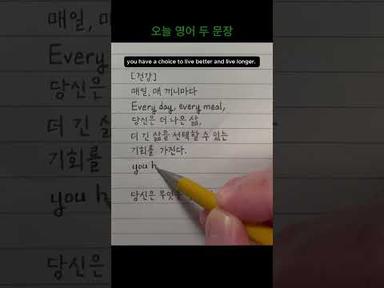 오늘 영어 두 문장
you have a choice to live better and live longer.
[건강]
매일, 매 끼니마다
Every day, every meal,
당신은 더 나은 삶,
더 긴 삶을 선택할 수 있는
기회를 가진다.
you h
당신은 무엇을